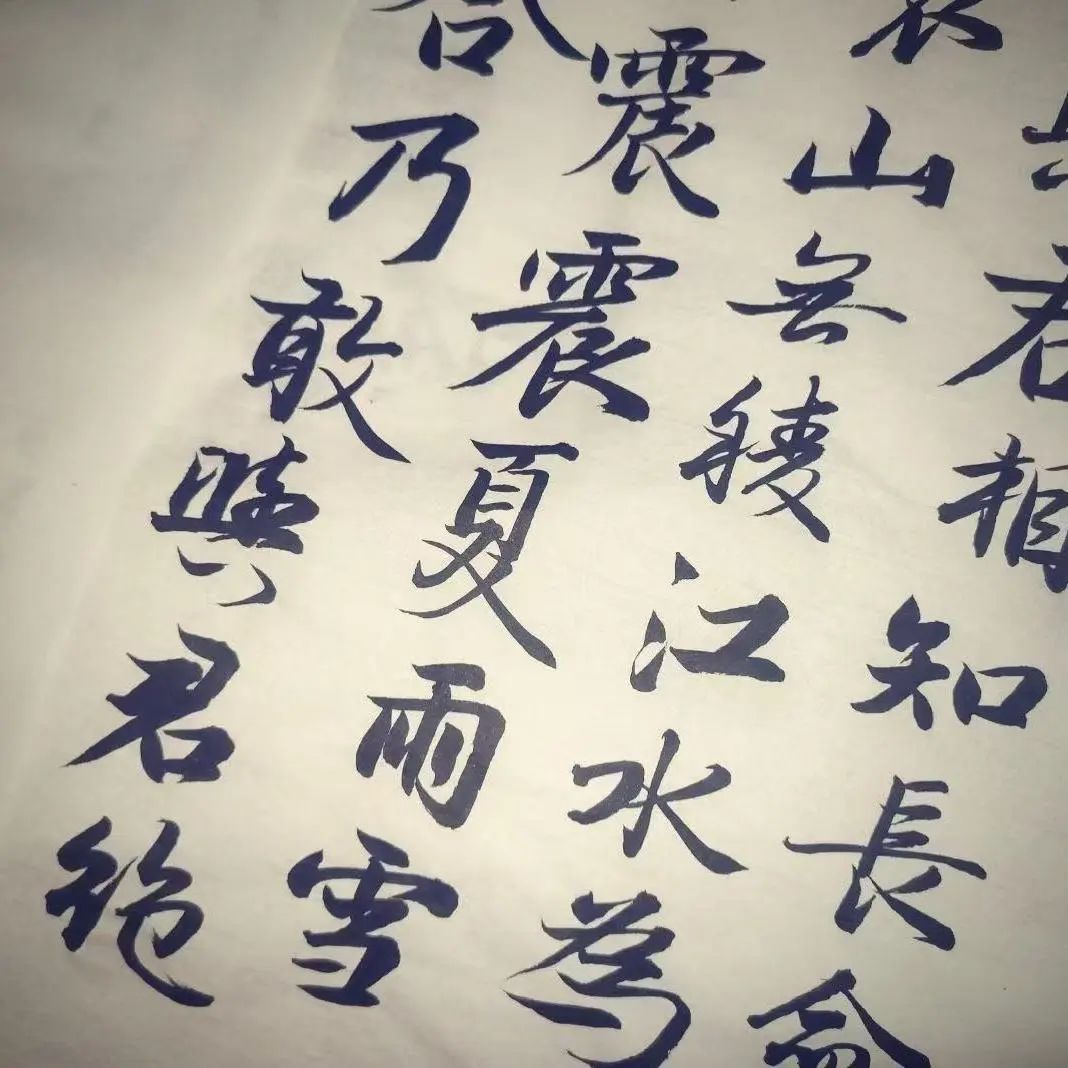 君相知長命
衰山無稜江水為
震震夏雨雪
合乃敢與君絕